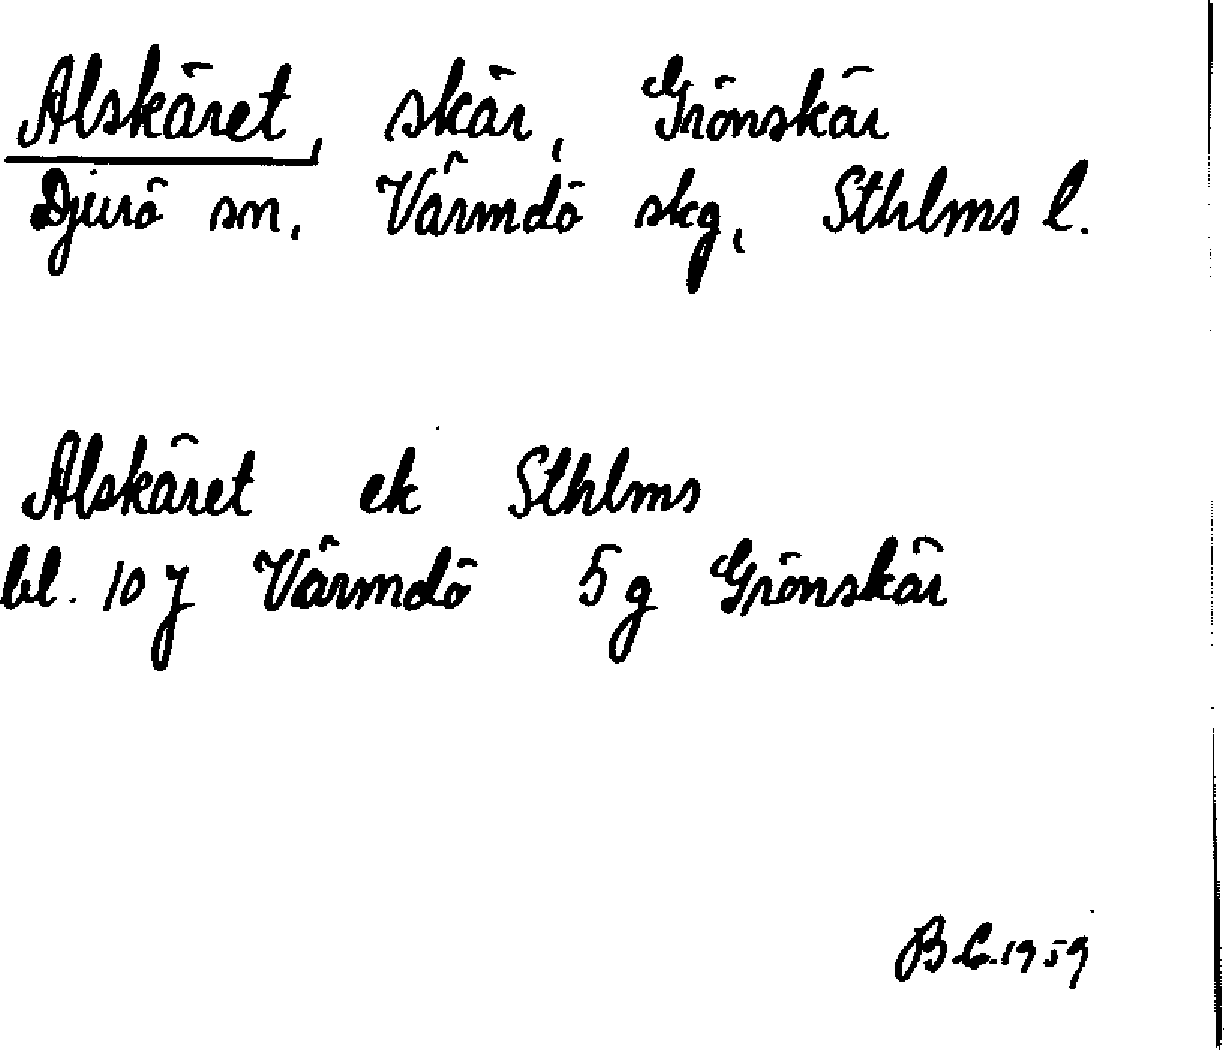 Alskäret, skär, Grönskär
Djurö sn. Värmdö skg, Sthlms l.
Alskäret ek Sthlms
bl. 10 j Värmdö 5 g Grönskär
B C. 1959